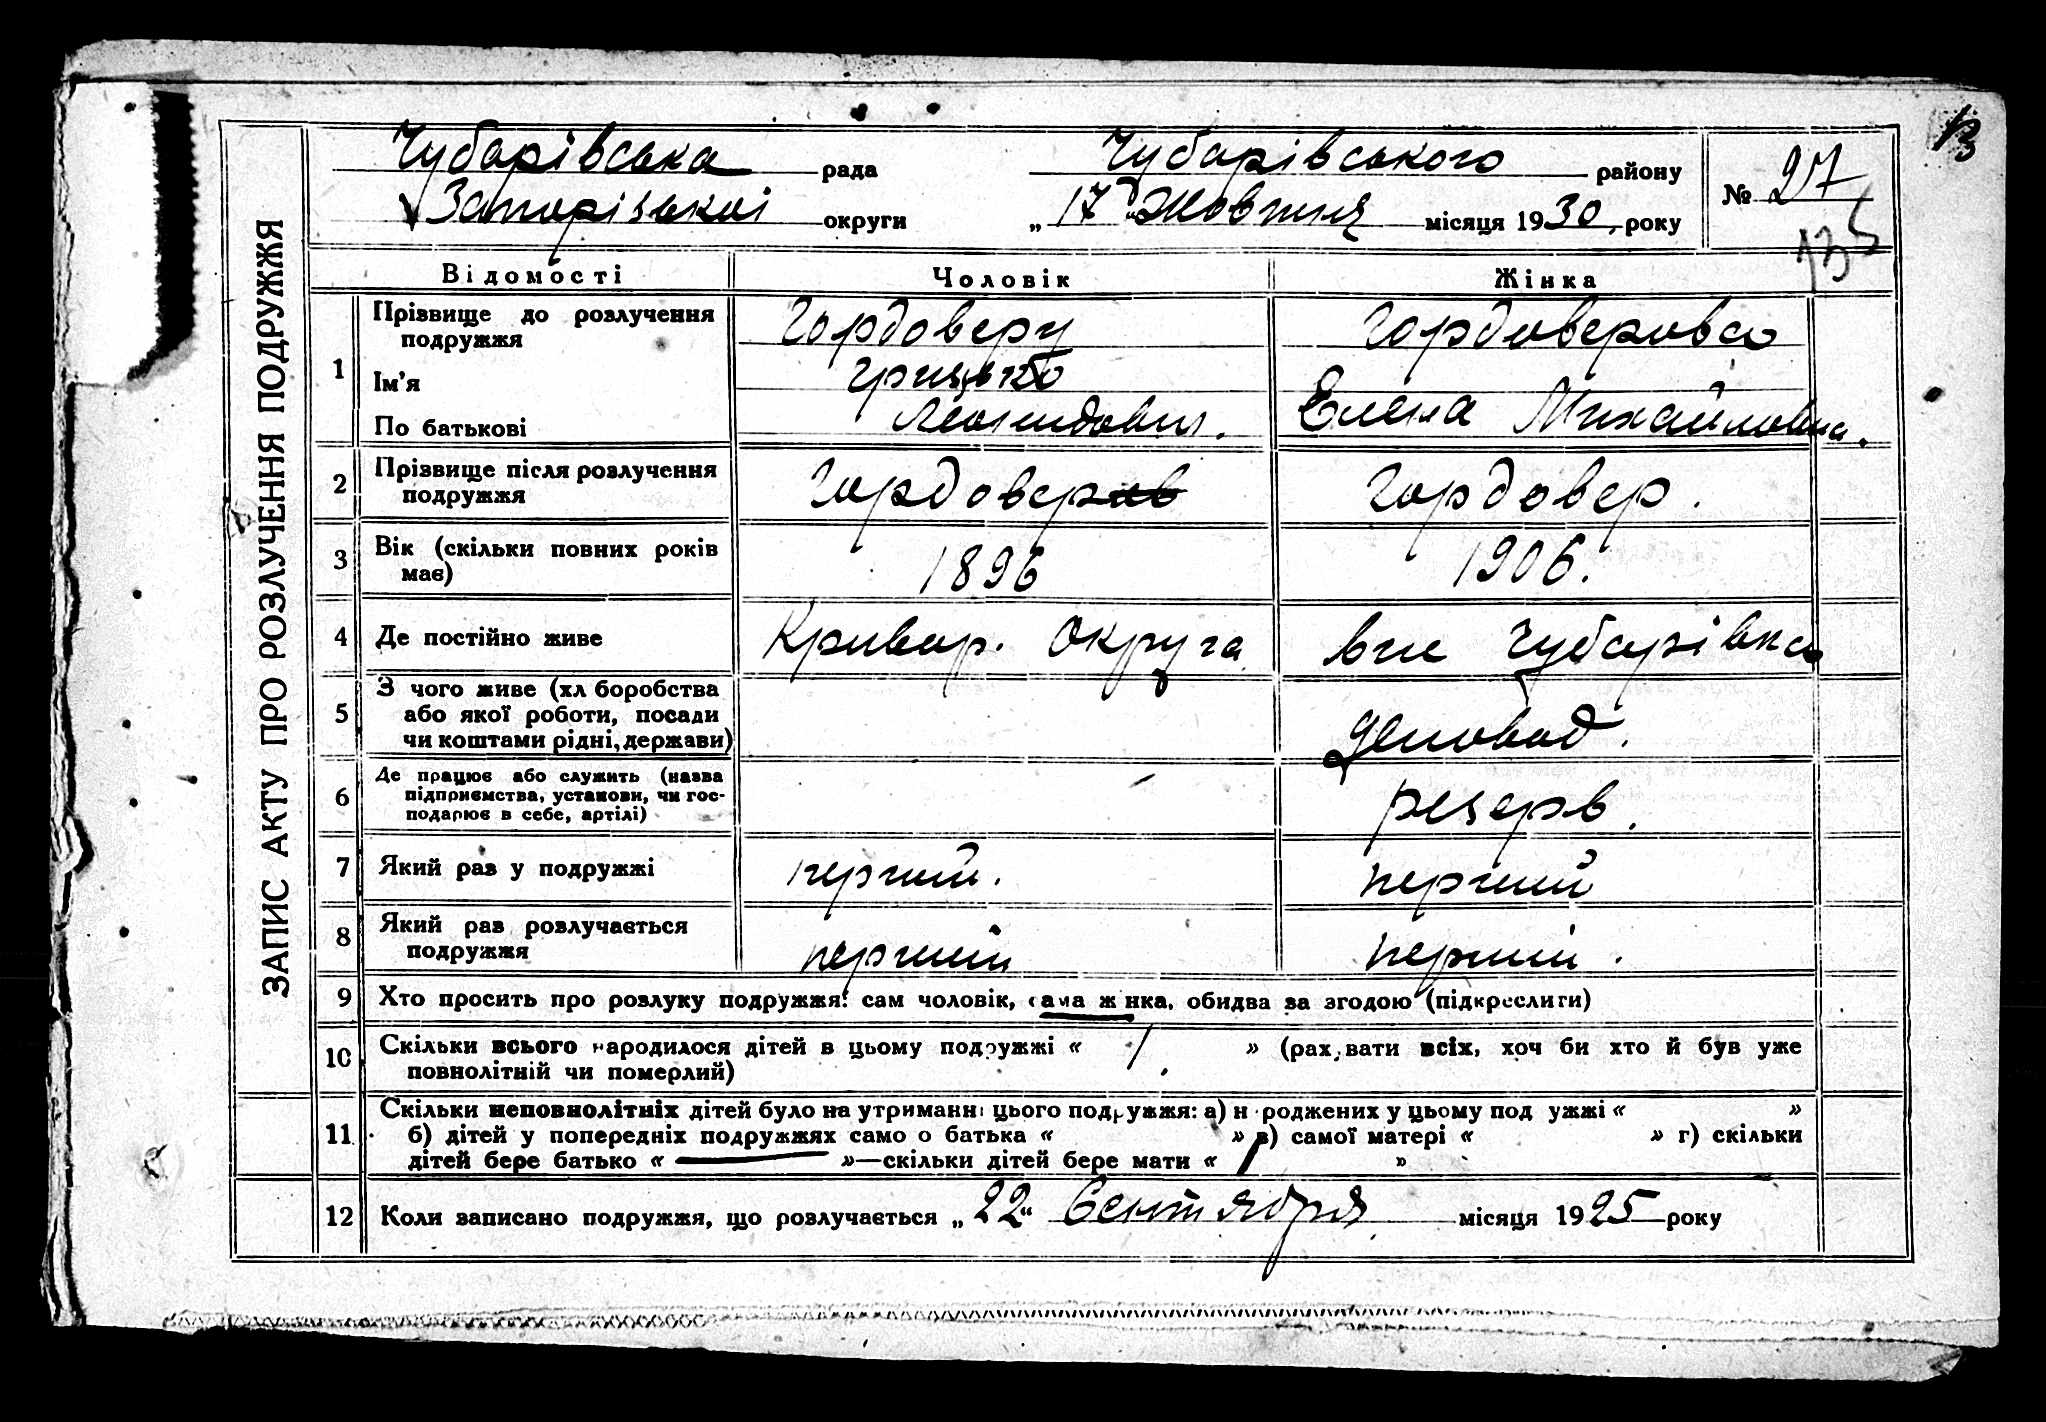 13
Чубарівська рада Чубарівського району № 27
Запорізької округи „ 17 " Жовтня місяця 1930 року
135
ЗАПИС АКТУ ПРО РОЗЛУЧЕННЯ ПОДРУЖЖЯ
Відомості Чоловік Жінка
1 Прізвище до розлучення подружжя Гордоверу Гордоверова
Ім'я Грицько Елена Михайловна.
По батькові Леонидович.
2 Прізвище після розлучення подружжя Гордовер Гордовер.
3 Вік (скільки повних років має) 1896 1906.
4 Де постійно живе Кривор. Округа Чубарівка
5 З чого живе (хліборобства
або якої роботи, посади
чи коштами рідні, держави) діловод.
6 Де працює або служить (назва
підприємства, установи, чи гос-
подарює в себе, артілі) резерв.
7 Який раз у подружжі перший. перший
8 Який раз розлучається подружжя перший перший.
9 Хто просить про розлуку подружжя: сам чоловік, сама жінка, обидва за згодою (підкреслити)
10 Скільки всього народилося дітей в цьому подружжі « 1. » (рахувати всіх, хоч би хто й був уже
повнолітній чи померлий)
11 Скільки неповнолітніх дітей було на утриманні цього подружжя: а) народжених у цьому подружжі « »
б) дітей у попередніх подружжях само о батька « » в) самої матері « » г) скільки
дітей бере батько « — »—скільки дітей бере мати « 1 »
12 Коли записано подружжя, що розлучається „ 22 " Сентября місяця 1925 року